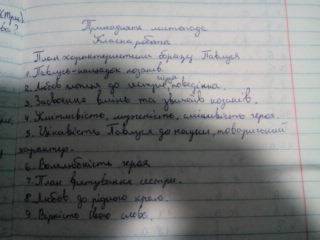 Тринадцяте листопада
Класна робота
План характеристики образу Павлуся
1. Павлусь-нащадок козаків.
2. Любов хлопця до історії, поведінка.
3. Засвоєння вмінь та звичаїв козаків.
4. Кмітливість, мужність, сміливість героя.
5. Цікавість Павлуся до науки, товариський
характер.
6. Волелюбність героя.
7. План врятування сестри.
8. Любов до рідного краю.
9. Вірність свою слову.